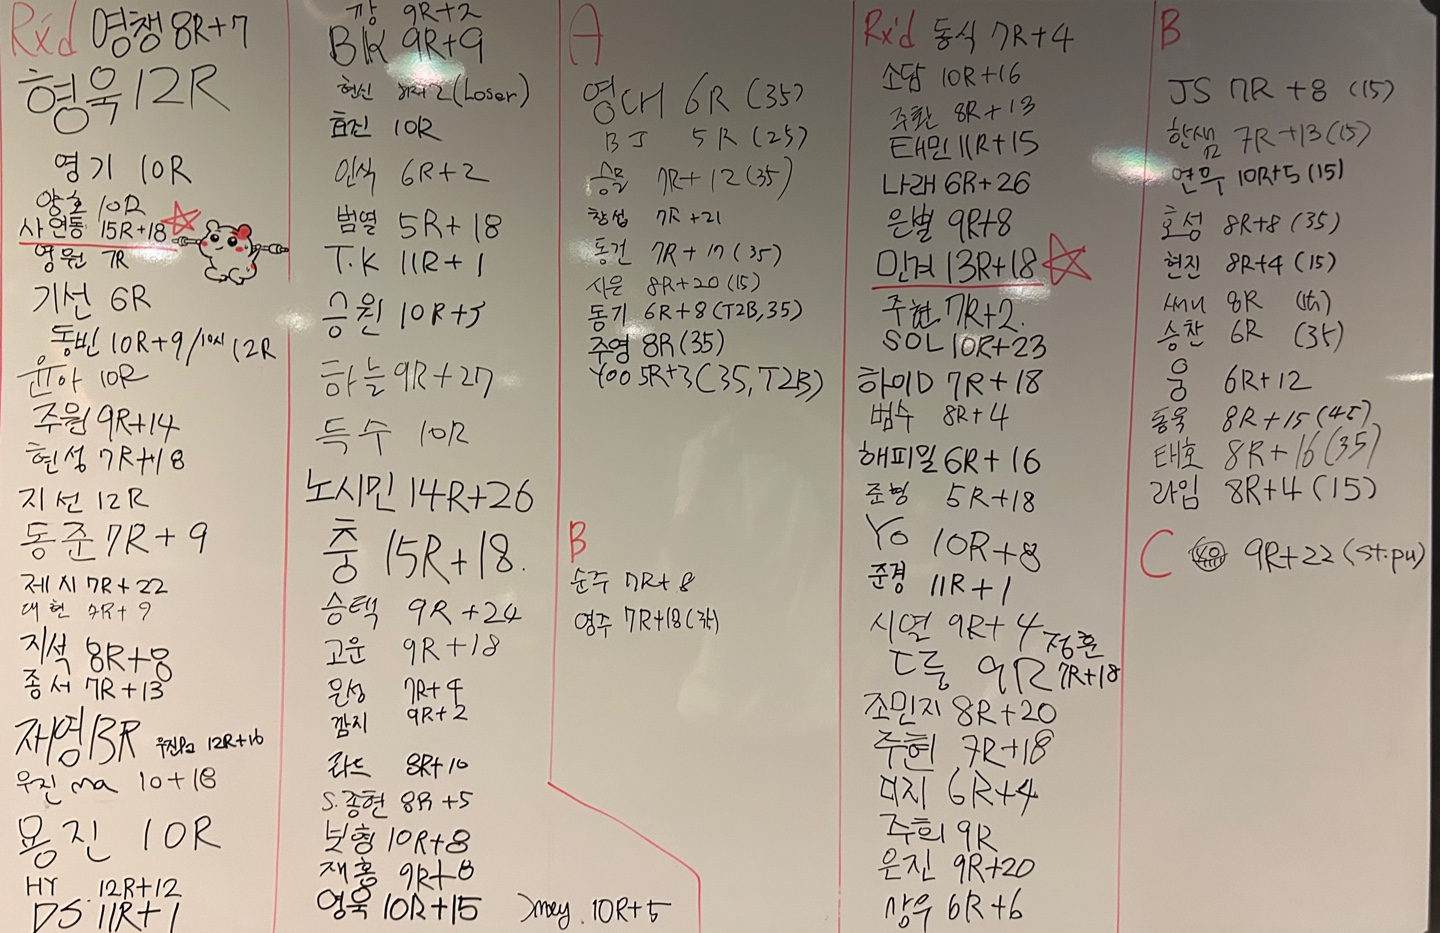 Rx'd 영쟁 8R+7
형욱 12R
영기 10R
양호 10R
사연동 15R+18
영원 7R
기선 6R
동빈 10R+9/10시 12R
윤아 10R
주원 9R+14
현성 7R+18
지선 12R
동준 7R+9
제시 7R+22
대현 7R+9
지석 8R+8
종서 7R+13
재영 13R
우진pa 12R+16
우진ma 10+18
용진 10R
HY 12R+12
DS 11R+1
깡 9R+2
BK 9R+9
현신 (Loser)
효진 10R
인식 6R+2
범열 5R+18
T.K 11R+1
승원 10R+5
하늘 9R+27
득수 10R
노시민 14R+26
충 15R+18.
승택 9R+24
고운 9R+18
은성 7R+4
깜지 9R+2
라드 8R+10
S.종현 8R+5
보형 10R+8
재홍 9R+8
영욱 10R+15
Jmey. 10R+5
A
영대 6R (35)
BJ 5R (25)
승물 7R+12 (35)
창섭 7R+21
동건 7R+17 (35)
시은 8R+20 (15)
동기 6R+8 (T2B,35)
주영 8R (35)
Yoo 5R+3 (35,T2B)
B
순주 7R+8
영주 7R+18
Rx'd 동식 7R+4
소담 10R+16
주환 8R+13
태민 11R+15
나래 6R+26
은별 9R+8
민겨 13R+18
주현 7R+2.
SOL 10R+23
하이D 7R+18
범수 8R+4
해피일 6R+16
준형 5R+18
Yo 10R+8
준경 11R+1
시열 9R+4
정훈 7R+18
드룽 9R
조민지 8R+20
주현 7R+18
미지 6R+4
주희 9R
은진 9R+20
상우 6R+6
B
JS 7R+8 (15)
한샘 7R+13 (15)
연욱 10R+5 (15)
호성 8R+8 (35)
현진 8R+4 (15)
써니 8R
승찬 6R (35)
웅 6R+12
동욱 8R+15 (45)
태호 8R+16 (35)
라임 8R+4 (15)
C 9R+22 (st.pu)